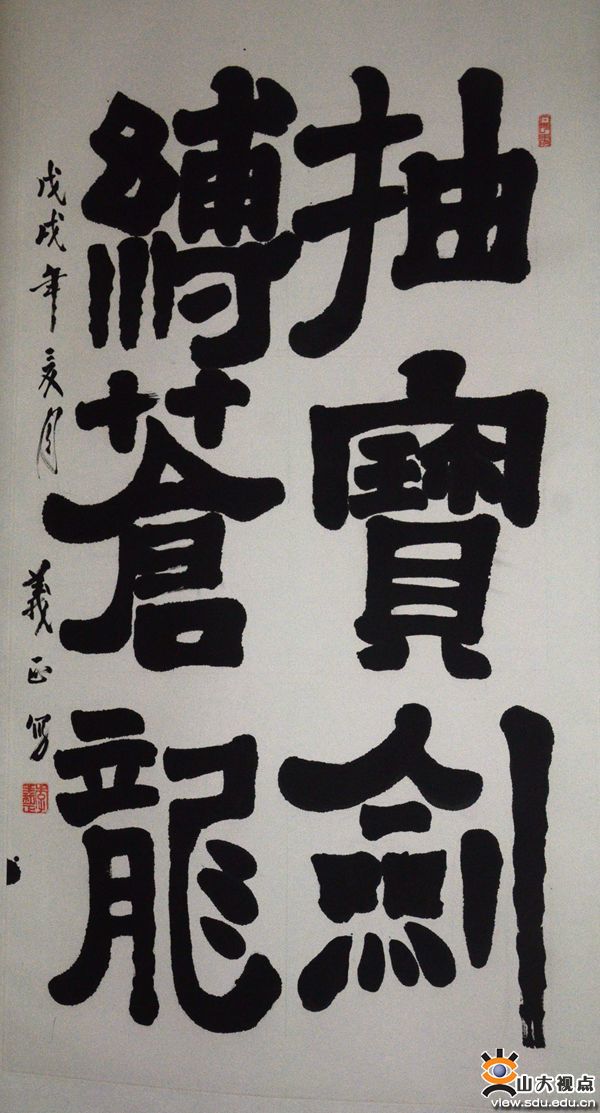 抽寶劍
縛蒼龍
戊戌年亥月
義正寫
山大视点
view.sdu.edu.cn